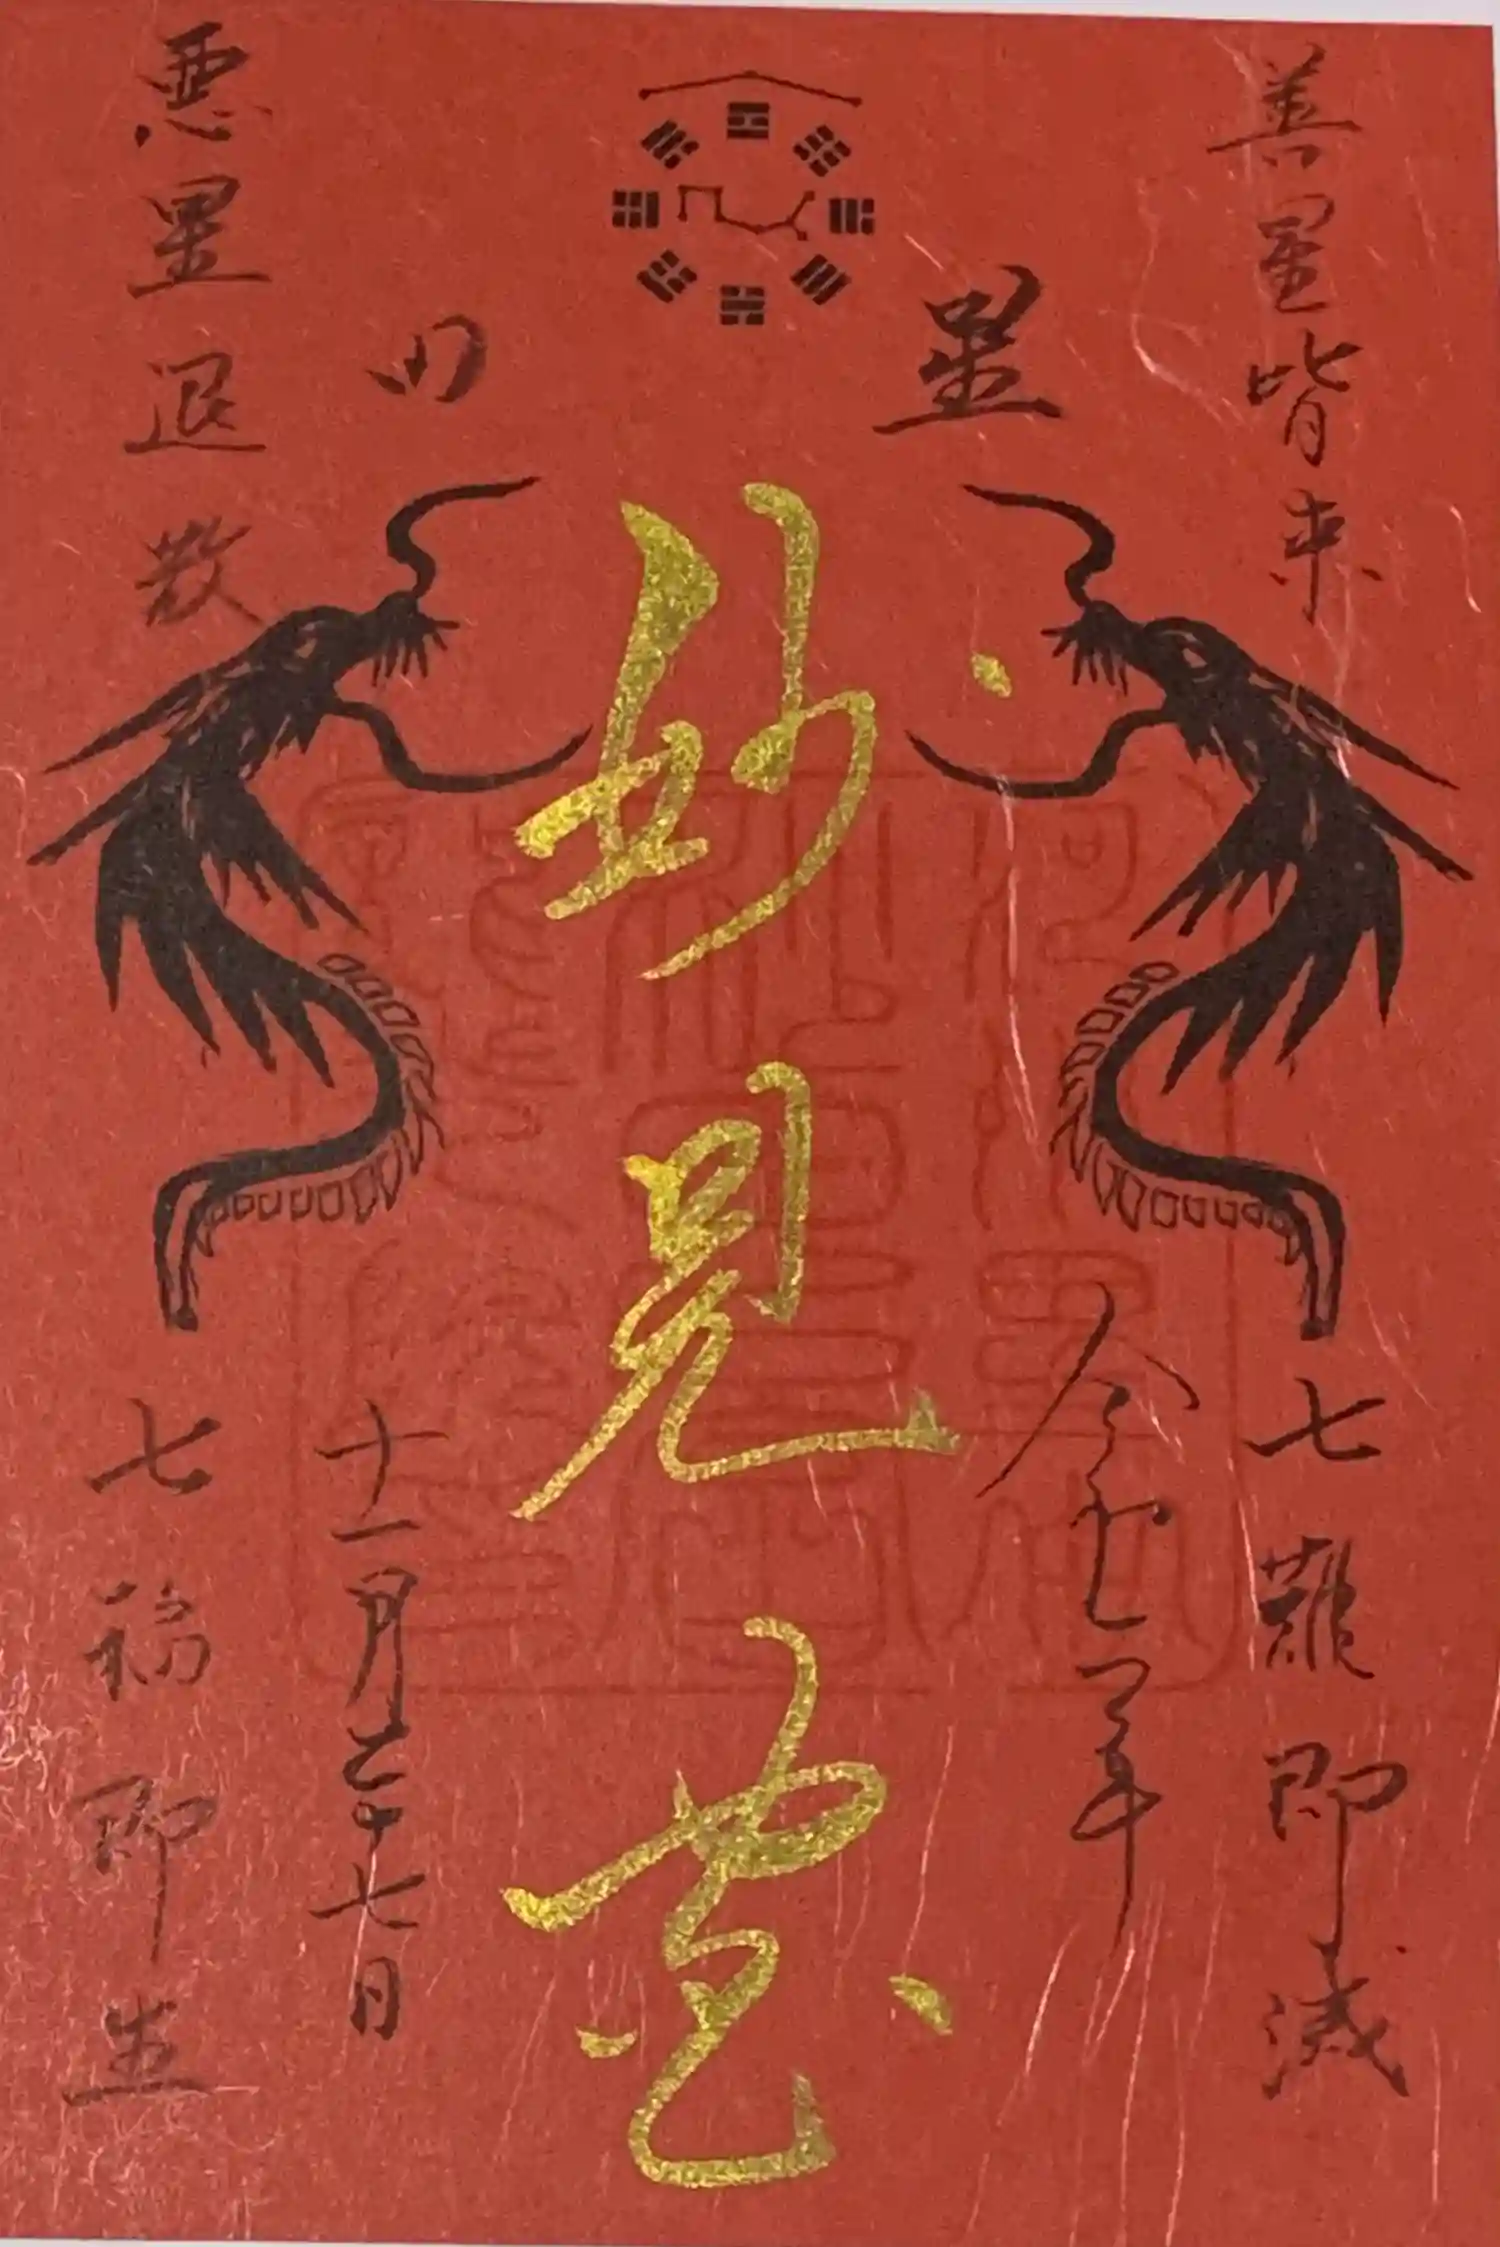 善星皆来
七難即滅
星田
妙見宮
令和七年
十一月二十七日
悪星退散
七福即生